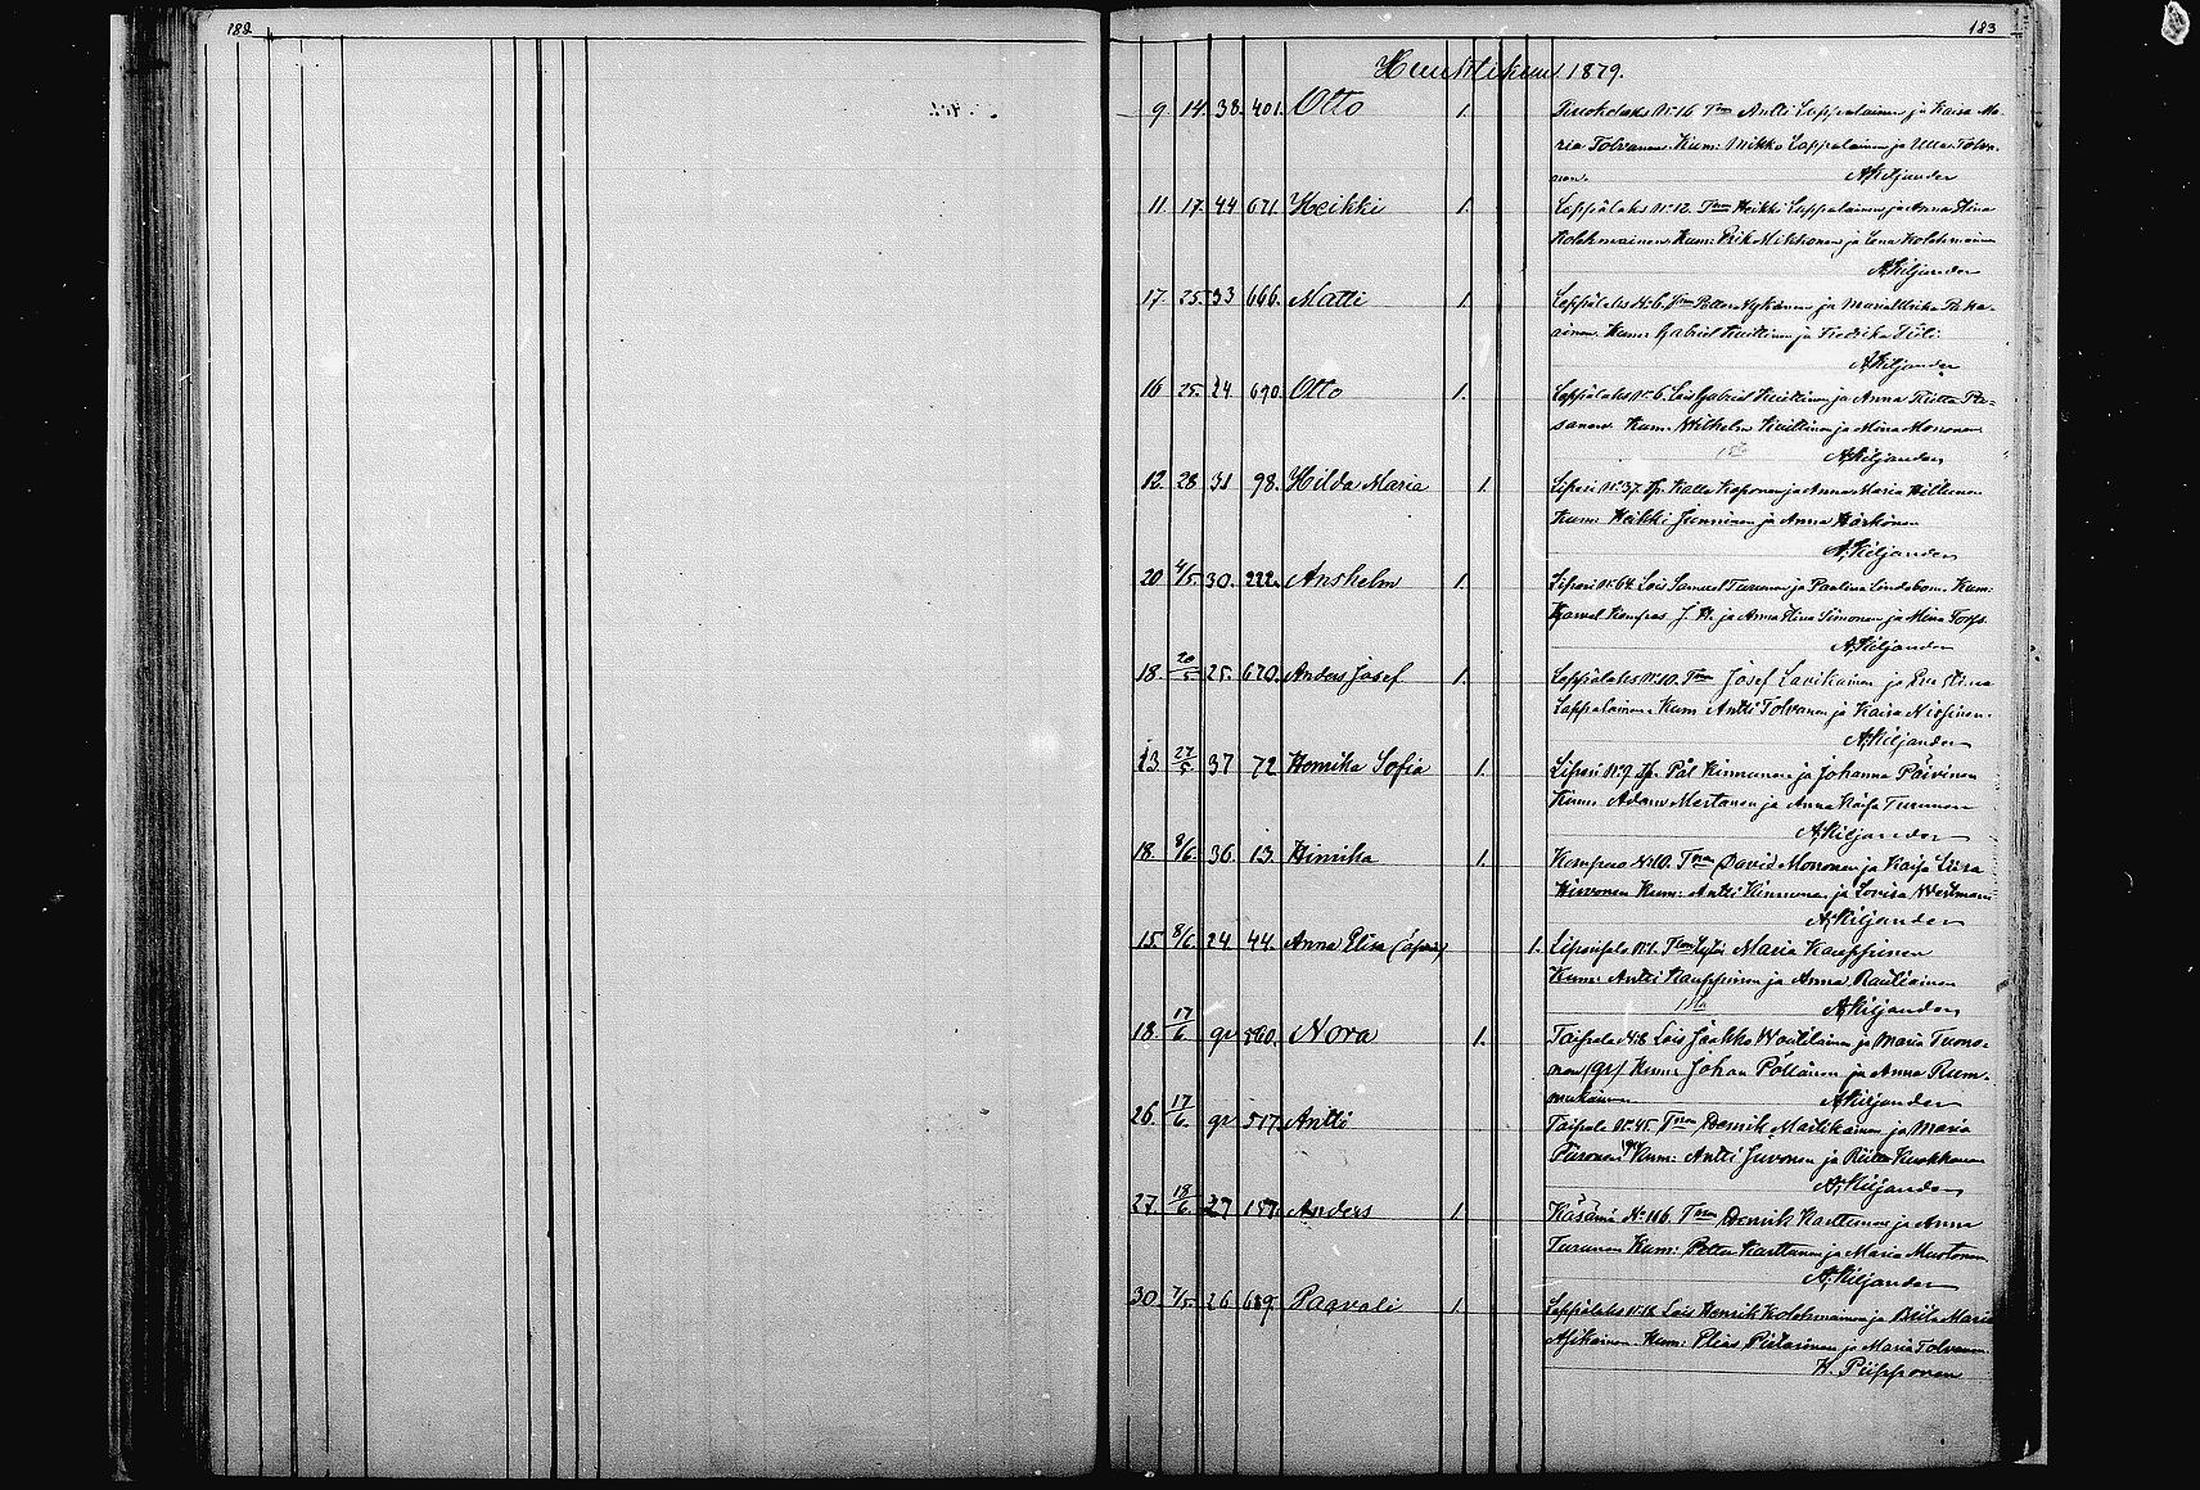 182
183
Huhtikuu 1879.
9. 14. 38. 401. Otto 1. N:o 16 Tmn Antti Lappalainen ja Kaisa Ma-
ria Tolvanen. Kum: Mikko Lappalainen ja Ulla Tolva-
nen. A. Kiljander
11. 17. 44 671. Heikki 1. Leppälaks N:o 12. Tmn Heikki Lappalainen ja Anna Stina
Kolehmainen. Kum: Erik Mikkonen ja Lena Kolehmainen
A. Kiljander
17. 25. 33 666. Matti 1. Leppälaks N:o 6. Tmn Petter Nykänen ja Maria Ulrika
Kum: Gabriel Kuittinen ja Fredrika
A. Kiljander
16 25. 24. 690. Otto 1. Leppälaks N:o 6. Lois Gabriel Kuittinen ja Anna Riitta Pe-
sonen. Kum: Wilhelm Kuittinen ja Mina Mononen
A. Kiljander
12. 28 31 98. Hilda Maria 1. Liperi N:o 37. Tp. Kalle Kaponen ja Anna Maria Hiltunen
Kum: Heikki Junninen ja Anna Härkönen
A. Kiljander
20 4/5. 30. 222. Anshelm 1. Liperi N:o 64. Lois Samuel Turunen ja Paulina Lindebom. Kum:
J. H. ja Anna Stina Simonen ja Mina
A. Kiljander
18. 20/5 25. 670. Anders Josef 1. Leppälaks N:o 10. Tmn Josef Lavikainen ja Eva Stina
Lappalainen. Kum Antti Tolvanen ja Kaisa Nissinen.
A. Kiljander
13 27/5 37 72 Henrika Sofia 1. Liperi N:o 9 Tp. Pål Kinnunen ja Johanna Päivinen
Kum: Adam Mertanen ja Anna Kaisa Turunen
A. Kiljander
18. 8/6. 36. 13. Hinrika 1. Kompero N:o 10. Tmn David Mononen ja Kaisa Liisa
Hirvonen Kum: Antti Kinnunen ja Lovisa Westman
A. Kiljander
15. 8/6. 24. 44. Anna Elisa (äpärä) 1. Liperinsalo N:o 1. Tmn tytär Maria Kauppinen
Kum: Antti Kauppinen ja Anna Rautiainen
A. Kiljander
18. 17/6. gr 560. Nora 1. Taipale N:o 8 Lois Jaakko Woutilainen ja Maria Tuono-
nen (gr) Kum: Johan Pöllänen ja Anna Rum-
mukainen A. Kiljander
26. 17/6. gr 517. Antti Taipale N:o 45. Tmn Henrik Martikainen ja Maria
Piironen gr Kum: Antti Juvonen ja Riitta Kuokkanen
A. Kiljander
27. 18/6. 27 157. Anders 1. Käsämä N:o 116. Tmn Henrik Karttunen ja Anna
Turunen Kum: Petter Karttunen ja Maria Mustonen.
A. Kiljander
30. 7/5. 26 689. Paavali 1. Leppälaks N:o 18. Lois Henrik Kolehmainen ja Briita Maria
Asikainen. Kum: Elias Pietarinen ja Maria Tolvanen.
H. Piipponen